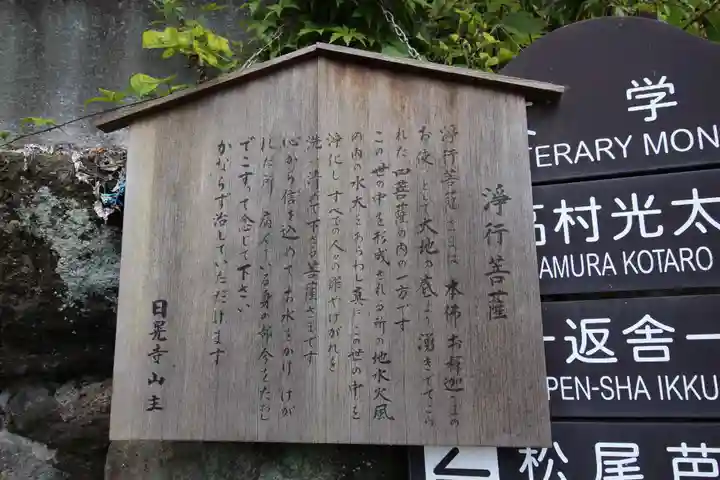 淨行菩薩
淨行菩薩さまは 本佛お釈迦さまの
お使いとして大地の底より湧きでてこら
れた四菩薩の内の一方です
この世の中を形成される所の地水火風
の内の水大をあらわし真にこの世の中を
浄化し すべての人々の罪やけがれを
洗い清めて下さる菩薩さまです
心から信を込めてお水をかけ けが
れた所 病んでいる身の部分をたわし
でこすって念じて下さい
かならず治していただけます
日晃寺山主
学
TERARY MON
高村光太
AMURA KOTARO
一返舎一
PEN-SHA IKKU
松尾芭